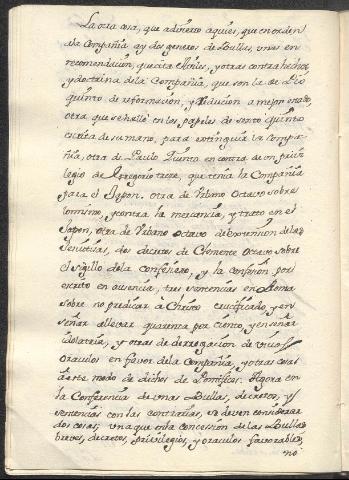 La otra cosa, que advierto aqui es, que en orden
ala Compañia ay dos generos de Bullas, unas en
recomendacion, que cita Moles, y otras contra hechos
y doctrina dela Compañia, que son la de Pio
quinto de reformación, y reducion a mejor estado,
otra que se halló en los papeles de sexto quinto
escrita de su mano, para extinguir la Compa-
ñia, otra de Paulo Quinto en contra de un privi-
legio de Gregorio trece, que tenia la Compañia
para el Japon, otra de Urbano Octavo sobre
lo mismo, y contra la mercancia, y trato en el
Japon, otra de Urbano Octavo de extincion delas
Jesuitisas, dos decretos de Clemente Octavo sobre
el sigillo dela confession, y la confession por
escrito en ausencia, tres sentencias en Roma
sobre no predicar à Christo crucificado, y en-
señar allevar quarenta por ciento, y enseñar
idolatria, y otras de derogacion de vivos
oraculos en favor dela Compañia, y otras cosas
à este modo de dichos de Pontifices. Agora en
la Conferencia de unas Bullas, decretos, y
sentencias con las contrarias, se deven considerar
dos cosas, una que en la concession de las Bullas
breves, decretos, privilegios, y oraculos favorables,
no